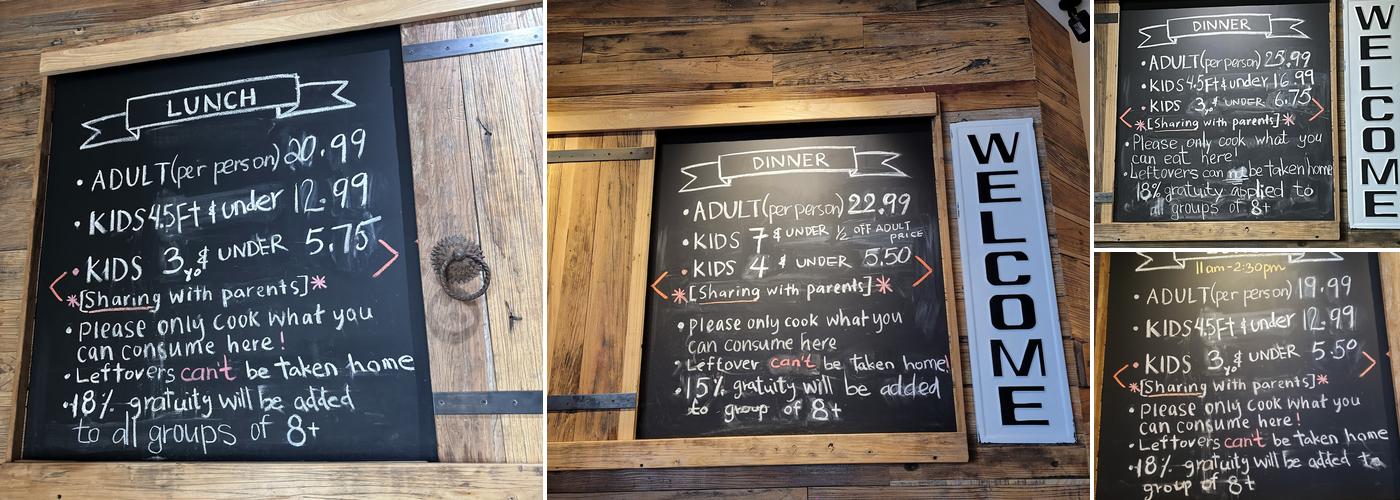 LUNCH
• ADULT (per person) 20.99
• KIDS 4.5Ft & under 12.99
• KIDS 3yo & UNDER 5.75
*[Sharing with parents]*
• Please only cook what you
can consume here!
• Leftovers can't be taken home
• 18% gratuity will be added
to all groups of 8+
DINNER
• ADULT (per person) 22.99
• KIDS 7 & UNDER ½ OFF ADULT
PRICE
• KIDS 4 & UNDER 5.50
*[Sharing with parents]*
• Please only cook what you
can consume here
• Leftover can't be taken home!
• 15% gratuity will be added
to group of 8+
WELCOME
DINNER
• ADULT (per person) 25.99
• KIDS 4.5Ft & under 16.99
• KIDS 3yo & UNDER 6.75
*[Sharing with parents]*
• Please only cook what you
can eat here!
• Leftovers can not be taken home
18% gratuity applied to
all groups of 8+
WELCOME
11am-2:30pm
• ADULT (per person) 19.99
• KIDS 4.5Ft & under 12.99
• KIDS 3yo & UNDER 5.50
*[Sharing with parents]*
• Please only cook what you
can consume here!
• Leftovers can't be taken home
• 18% gratuity will be added to
group of 8+